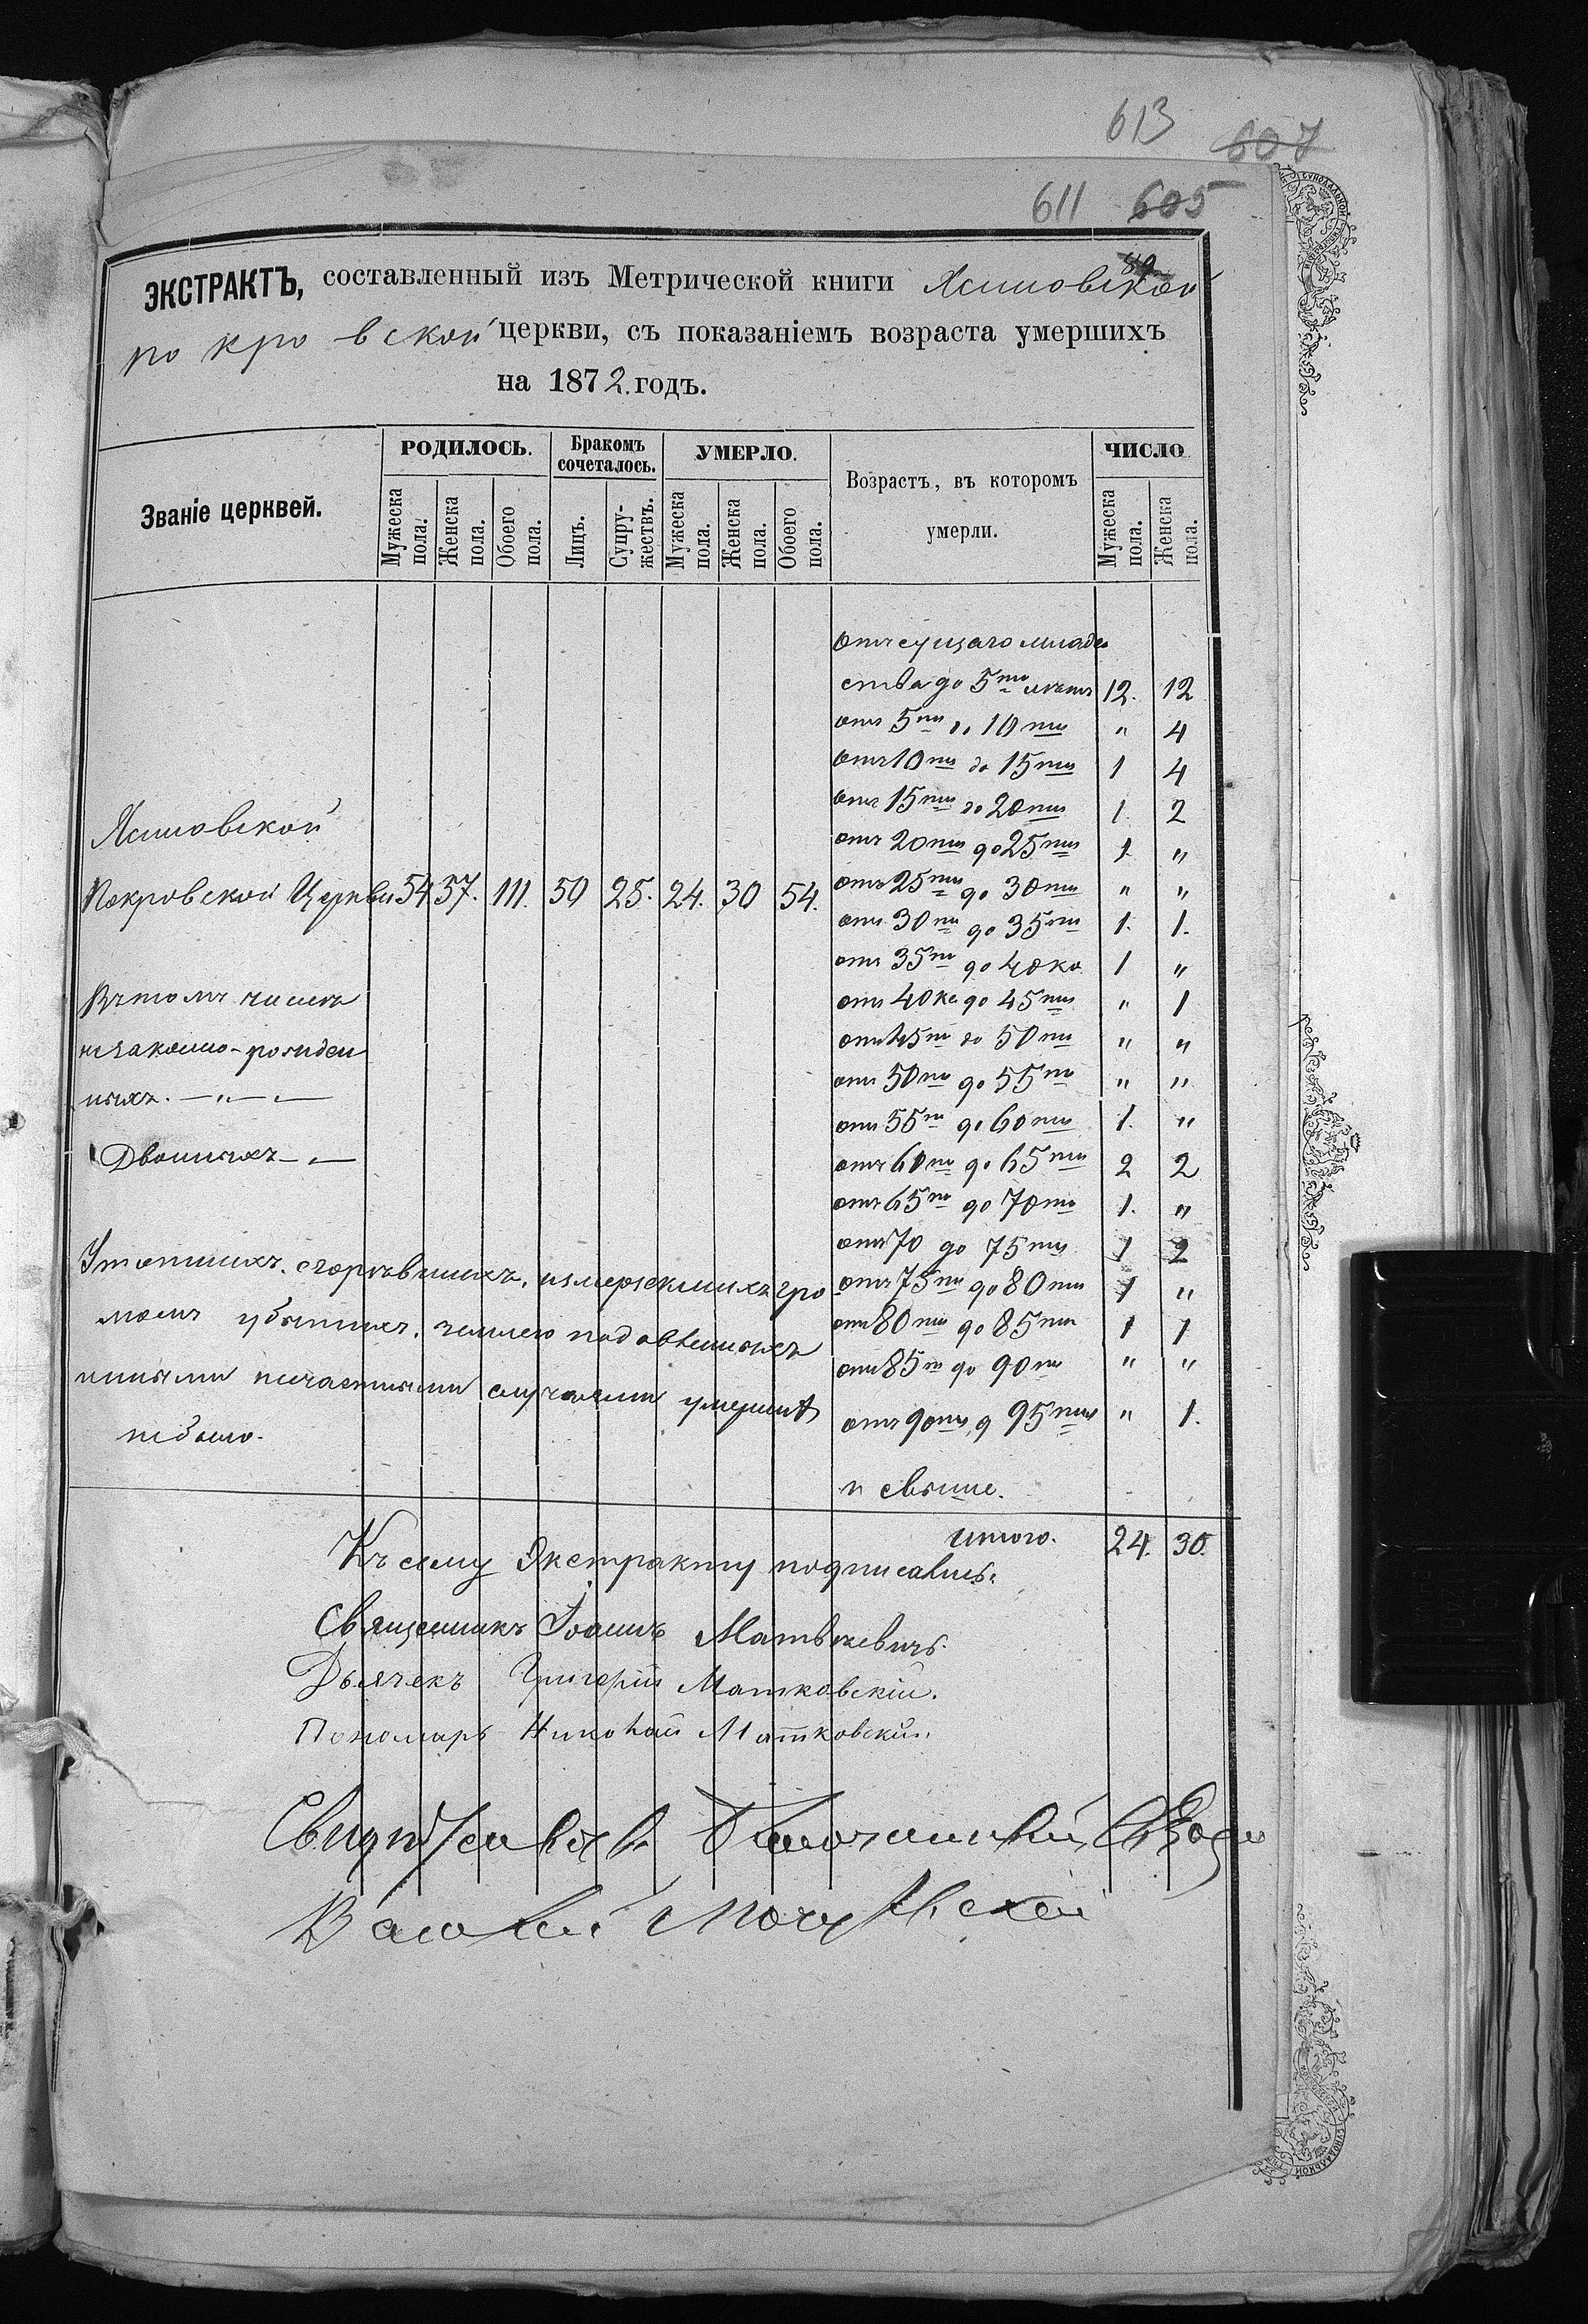 613 607
611 605
89
ЭКСТРАКТЪ, составленный изъ Метрической книги Ясиновской
покровской церкви, съ показаніемъ возраста умершихъ
на 1872. годъ.
Званіе церквей.
РОДИЛОСЬ.
Бракомъ сочеталось.
УМЕРЛО.
Возрастъ, въ которомъ умерли.
ЧИСЛО
Мужеска пола.
Женска пола.
Обоего пола.
Лицъ.
Супружествъ.
Мужеска пола.
Женска пола.
Обоего пола.
Мужеска пола.
Женска пола.
Ясиновской
Покровской Церкви 54 57. 111. 50 25. 24. 30 54.
Въ томъ числѣ
незаконно-рожден
ныхъ. — „ — „ —
Двойныхъ — „ —
Утопшихъ, сгорѣвшихъ, измерзшихъ, гро
момъ убитыхъ, землею подавленныхъ
иными нечастными случаями умерших
небыло.
отъ сущаго младен
ства до 5ти лѣтъ 12. 12
отъ 5ти до 10ти " 4
отъ 10ти до 15ти 1 4
отъ 15ти до 20ти 1. 2
отъ 20ти до 25ти 1. "
отъ 25ти до 30ти " "
отъ 30ти до 35ти 1. 1.
отъ 35ти до 40ка 1 "
отъ 40ка до 45ти " 1
отъ 45ти до 50ти " "
отъ 50ти до 55ти " "
отъ 55ти до 60ти 1. "
отъ 60ти до 65ти 2 2
отъ 65ти до 70ти 1. "
отъ 70 до 75ти 1 2
отъ 75ти до 80ти 1 "
отъ 80ти до 85ти 1 1
отъ 85ти до 90ти " "
отъ 90ти д 95ти " 1.
и свыше.
итого. 24. 30.
Къ сему Экстракту подписались:
Священникъ Іоаннъ Матвѣевичъ.
Дьячекъ Григорій Матковскій.
Пономаръ Николай Матковскій.